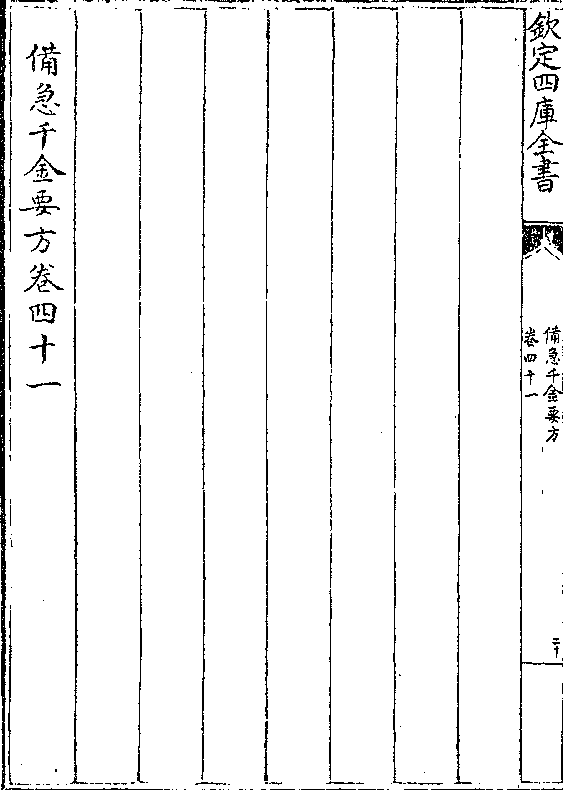 欽定四庫全書
備急千金要方
卷四十一
二十
備急千金要方卷四十一